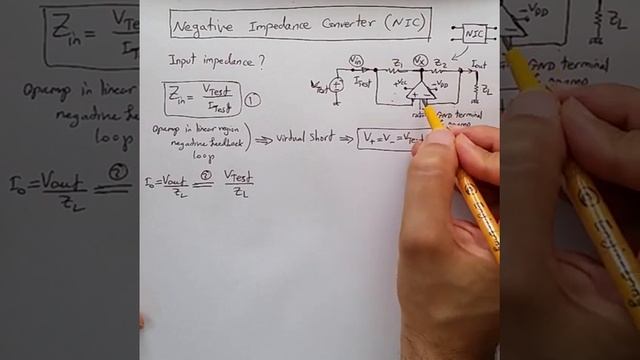 Negative Impedance Converter (NIC)
NIC
Input impedance ?
Zin = VTest / ITest ①
Vin
Z1
Vx
Z2
Iout
ITest
VTest
+Vcc
-VDD
ZL
+ -
GND terminal
Opamp in linear region
negative feedback
loop
⇒ Virtual Short ⇒ V+ = V- = VTest
Io = Vout / ZL = ② VTest / ZL
Zin = VTest / ITest
-VDD
ZL
GND terminal
Engineering